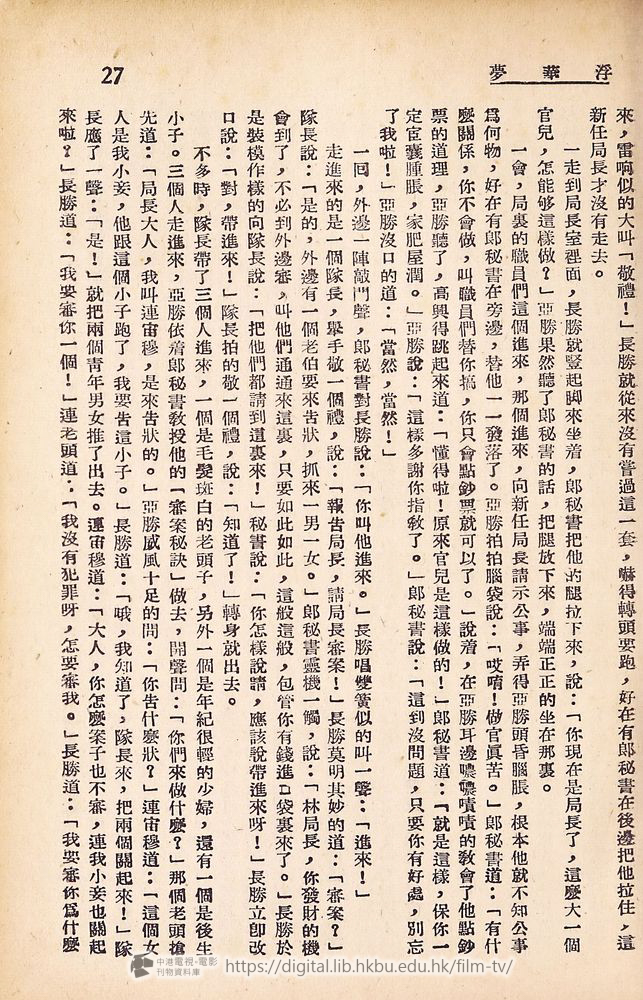 浮華夢
27
來，雷响似的大叫「敬禮！」長勝就從來沒有嘗過這一套，嚇得轉頭要跑，好在有郎秘書在後邊把他拉住，這
新任局長才沒有走去。
一走到局長室裡面，長勝就豎起脚來坐着，郎秘書把他的腿拉下來，說：「你現在是局長了，這麽大一個
官兒，怎能够這樣做？」亞勝果然聽了郎秘書的話，把腿放下來，端端正正的坐在那裏。
一會，局裏的職員們這個進來，那個進來，向新任局長請示公事，弄得亞勝頭昏腦脹，根本他就不知公事
爲何物，好在有郎秘書在旁邊，替他一一發落了。亞勝拍拍腦袋說：「哎唷！做官眞苦。」郎秘書道：「有什
麽關係，你不會做，叫職員們替你搞，你只會點鈔票就可以了。」說着，在亞勝耳邊噥噥嘖嘖的敎會了他點鈔
票的道理，亞勝聽了，高興得跳起來道：「懂得啦！原來官兒是這樣做的！」郎秘書道：「就是這樣，保你一
定宦囊腫脹，家肥屋潤。」亞勝說：「這樣多謝你指敎了。」郎秘書說：「這到沒問題，只要你有好處，別忘
了我啦！」亞勝沒口的道：「當然，當然！」
一回，外邊一陣敲門聲，郎秘書對長勝說：「你叫他進來。」長勝唱雙簧似的叫一聲：「進來！」
走進來的是一個隊長，舉手敬一個禮，說：「報告局長，請局長審案！」長勝莫明其妙的道：「審案？」
隊長說：「是的，外邊有一個老伯要來告狀，抓來一男一女。」郎秘書靈機一觸，說：「林局長，你發財的機
會到了，不必到外邊審，叫他們通通來這裏，只要如此如此，這般這般，包管你有錢進口袋裏來了。」長勝於
是裝模作樣的向隊長說：「把他們都請到這裏來！」秘書說：「你怎樣說請，應該說帶進來呀！」長勝立卽改
口說：「對，帶進來！」隊長拍的敬一個禮，說：「知道了！」轉身就出去。
不多時，隊長帶了三個人進來，一個是毛髮斑白的老頭子，另外一個是年紀很輕的少婦，還有一個是後生
小子。三個人走進來，亞勝依着郎秘書敎授他的「審案秘訣」做去，開聲問：「你們來做什麽？」那個老頭搶
先道：「局長大人，我叫連宙穆，是來告狀的。」亞勝威風十足的問：「你告什麽狀？」連宙穆道：「這個女
人是我小妾，他跟這個小子跑了，我要告這小子。」長勝道：「哦，我知道了，隊長來，把兩個關起來！」隊
長應了一聲：「是！」就把兩個靑年男女推了出去。連宙穆道：「大人，你怎麽案子也不審，連我小妾也關起
來啦？」長勝道：「我要審你一個！」連老頭道：「我沒有犯罪呀，怎要審我。」長勝道：「我要審你爲什麽
中港電視·電影
刊物資料庫
https://digital.lib.hkbu.edu.hk/film-tv/